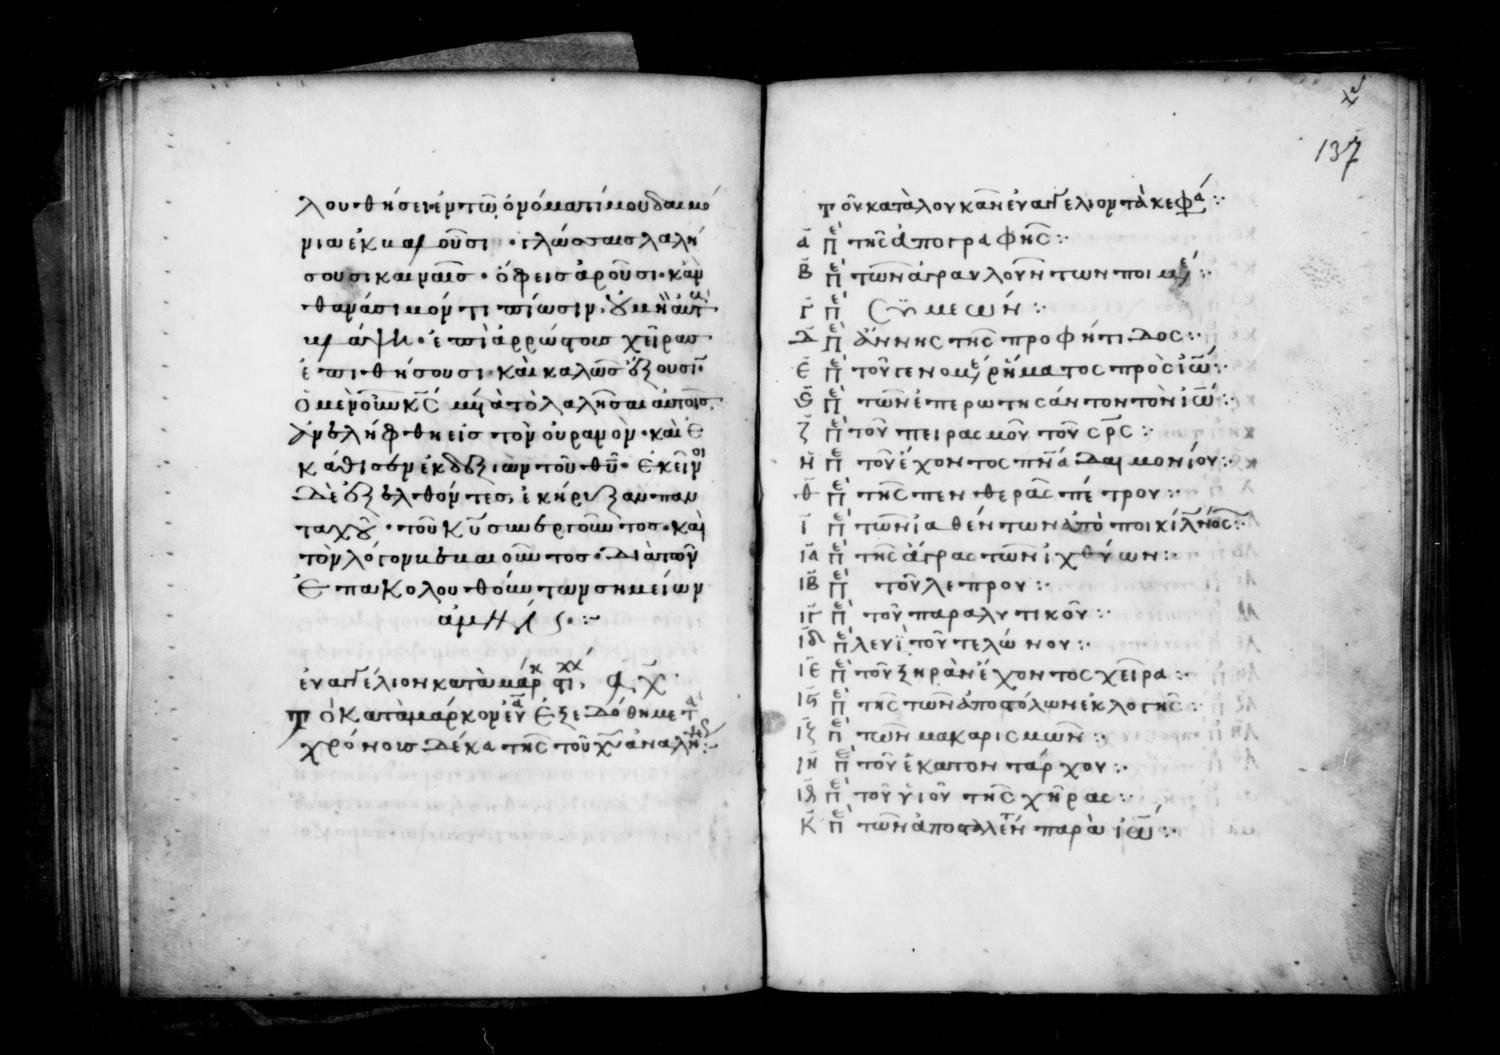 λουθήσει· ἐν τῶ ὀνόματί μου δαιμό
νια ἐκβαλοῦσι· γλώσσαις λαλή
σουσι καιναῖς· ὄφεις ἀροῦσι· κἂν
θανάσιμόν τι πίωσιν, οὐ μὴ αὐτ
βλάψη· ἐπὶ ἀρρώστους χεῖρας
ἐπιθήσουσι· καὶ καλῶς ἕξουσι·
ὁ μὲν οὖν κς μετὰ τὸ λαλῆσαι αὐτοῖς,
ἀνελήφθη εἰς τὸν οὐρανὸν· καὶ ἐ
κάθισεν ἐκ δεξιῶν τοῦ θυ· ἐκεῖνοι
δὲ ἐξελθόντες, ἐκήρυξαν παν
ταχοῦ· τοῦ κυ συνεργοῦντος· καὶ
τὸν λόγον βεβαιοῦντος· διὰ τῶν
ἐπακολουθούντων σημείων
ἀμήν:~
ἐυαγγέλιον κατὰ μάρκ στι, αχ
τὸ κατὰ μάρκον ἐυα ἐξεδόθη μετὰ
χρόνοις δέκα τῆς τοῦ χυ ἀναλή:
137
τοῦ κατὰ λουκᾶν ἐυαγγελίου τὰ κεφά:
α πε τῆς ἀπογραφῆς:
β πε τῶν ἀγραυλούντων ποιμέ:
γ πε συμεών:
δ πε ἄννης τῆς προφήτιδος:
ε πε τοῦ γενομέ ρήματος πρὸς ἰω:
ς πε τῶν ἐπερωτησάντων τὸν ἰω:
ζ πε τοῦ πειρασμοῦ τοῦ σρς:
η πε τοῦ ἔχοντος πνα δαιμονίου:
θ πε τῆς πενθερᾶς πέτρου:
ι πε τῶν ἰαθέντων ἀπὸ ποικίλ νόσ:
ια πε τῆς ἄγρας τῶν ἰχθύων:
ιβ πε τοῦ λεπροῦ:
ιγ πε τοῦ παραλυτικοῦ:
ιδ πε λευὶ τοῦ τελώνου:
ιε πε τοῦ ξηρὰν ἔχοντος χεῖρα:
ις πε τῆς τῶν ἀποστόλων ἐκλογῆς:
ιζ πε τῶν μακαρισμῶν:
ιη πε τοῦ ἑκατοντάρχου:
ιθ πε τοῦ υἱοῦ τῆς χήρας:
κ πε τῶν ἀποσταλέντ παρὰ ἰω: